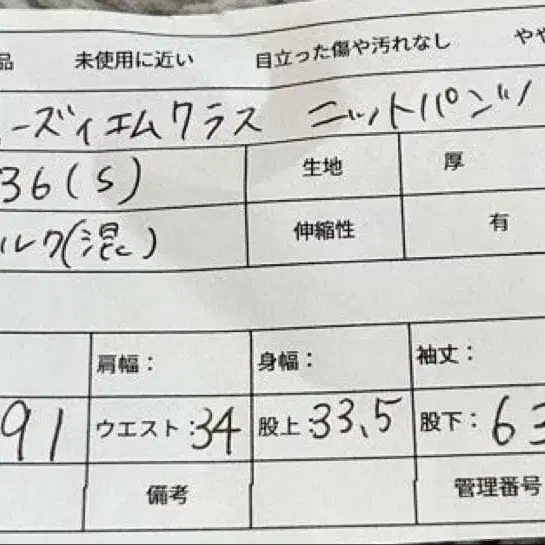 品 未使用に近い 目立った傷や汚れなし やや
ーズィエムクラス ニットパンツ
36(S) 生地 厚
ルク(混) 伸縮性 有
肩幅: 身幅: 袖丈:
91 ウエスト:34 股上:33,5 股下:63
備考 管理番号